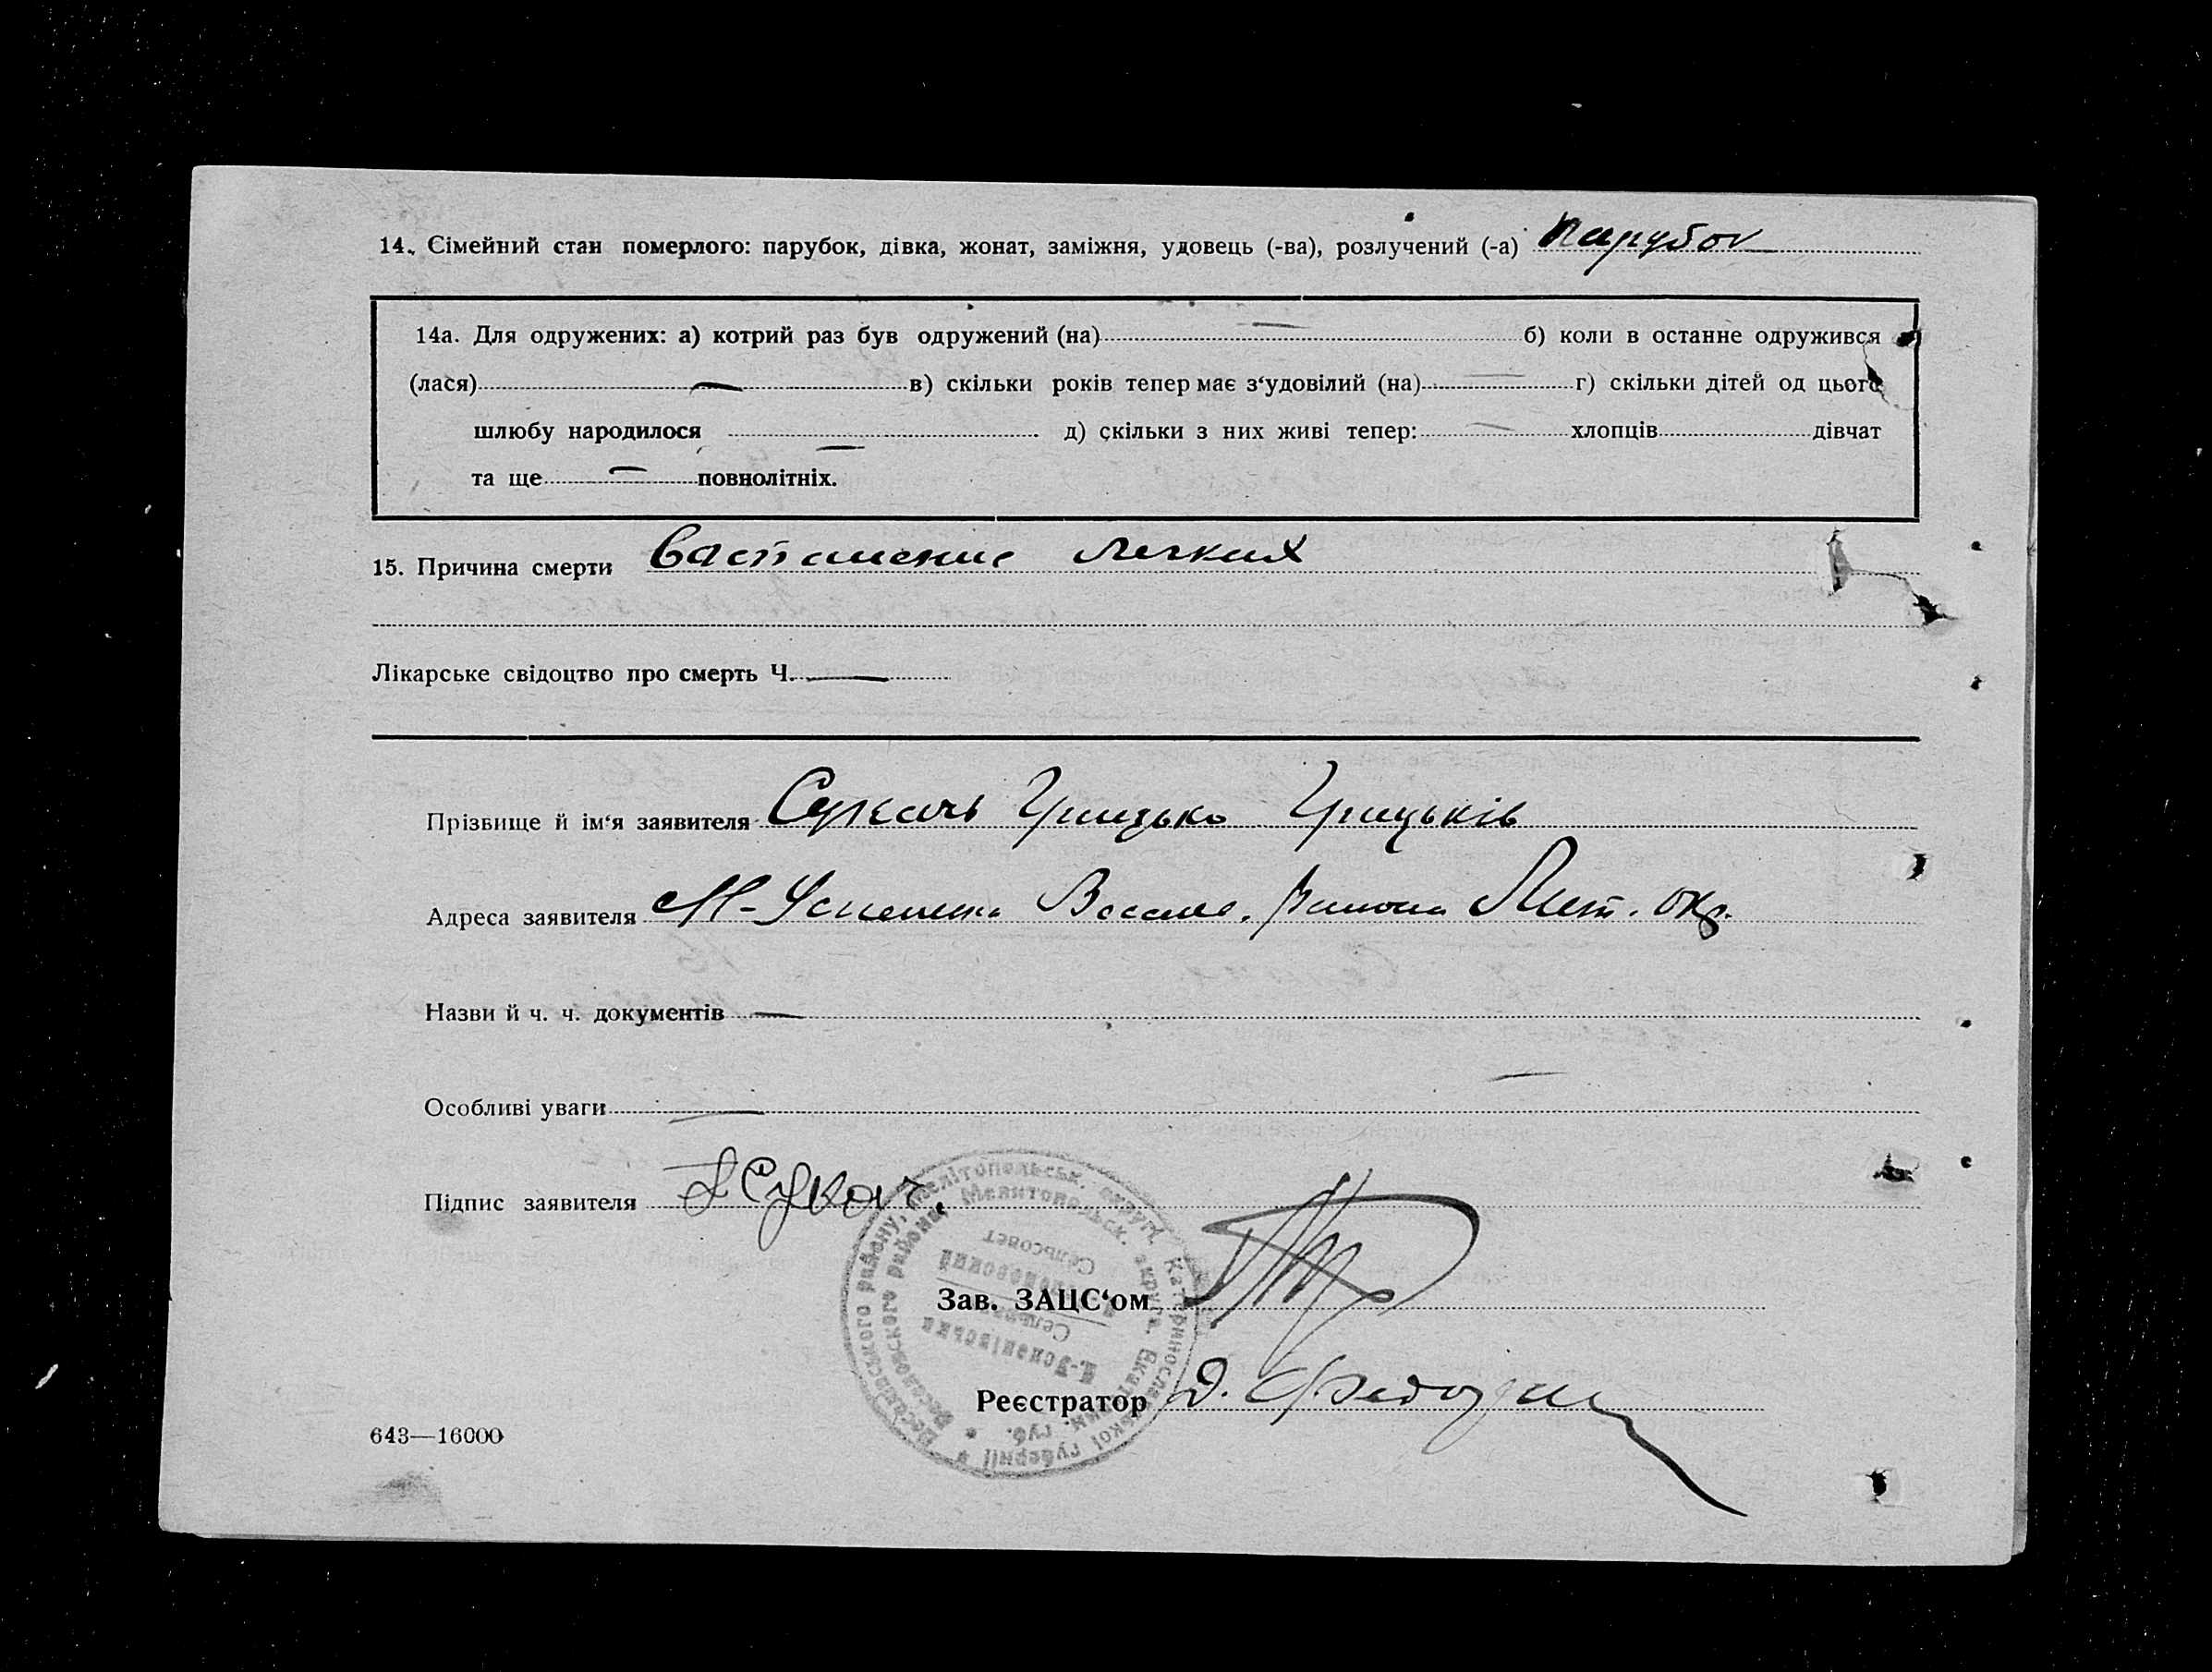 14. Сімейний стан померлого: парубок, дівка, жонат, заміжня, удовець (-ва), розлучений (-а) Парубок
14а. Для одружених: а) котрий раз був одружений (на) — б) коли в останне одружився
(лася) — в) скільки років тепер має з‘удовілий (на) — г) скільки дітей од цього
шлюбу народилося — д) скільки з них живі тепер: — хлопців дівчат
та ще — повнолітніх.
15. Причина смерти легких
Лікарське свідоцтво про смерть Ч. —
Прізвище й ім‘я заявителя Сукачь Грицько Грицьків
Адреса заявителя Мит. окр.
Назви й ч. ч. документів —
Особливі уваги —
Підпис заявителя Сукач.
Зав. ЗАЦС‘ом
Реєстратор Д.
643—16000
Веселівського району, Мелітопольськ. округи, Катеринославської губернії
Веселовского района, Мелитопольск. округа, Екатерин. губ.
Сельсовет